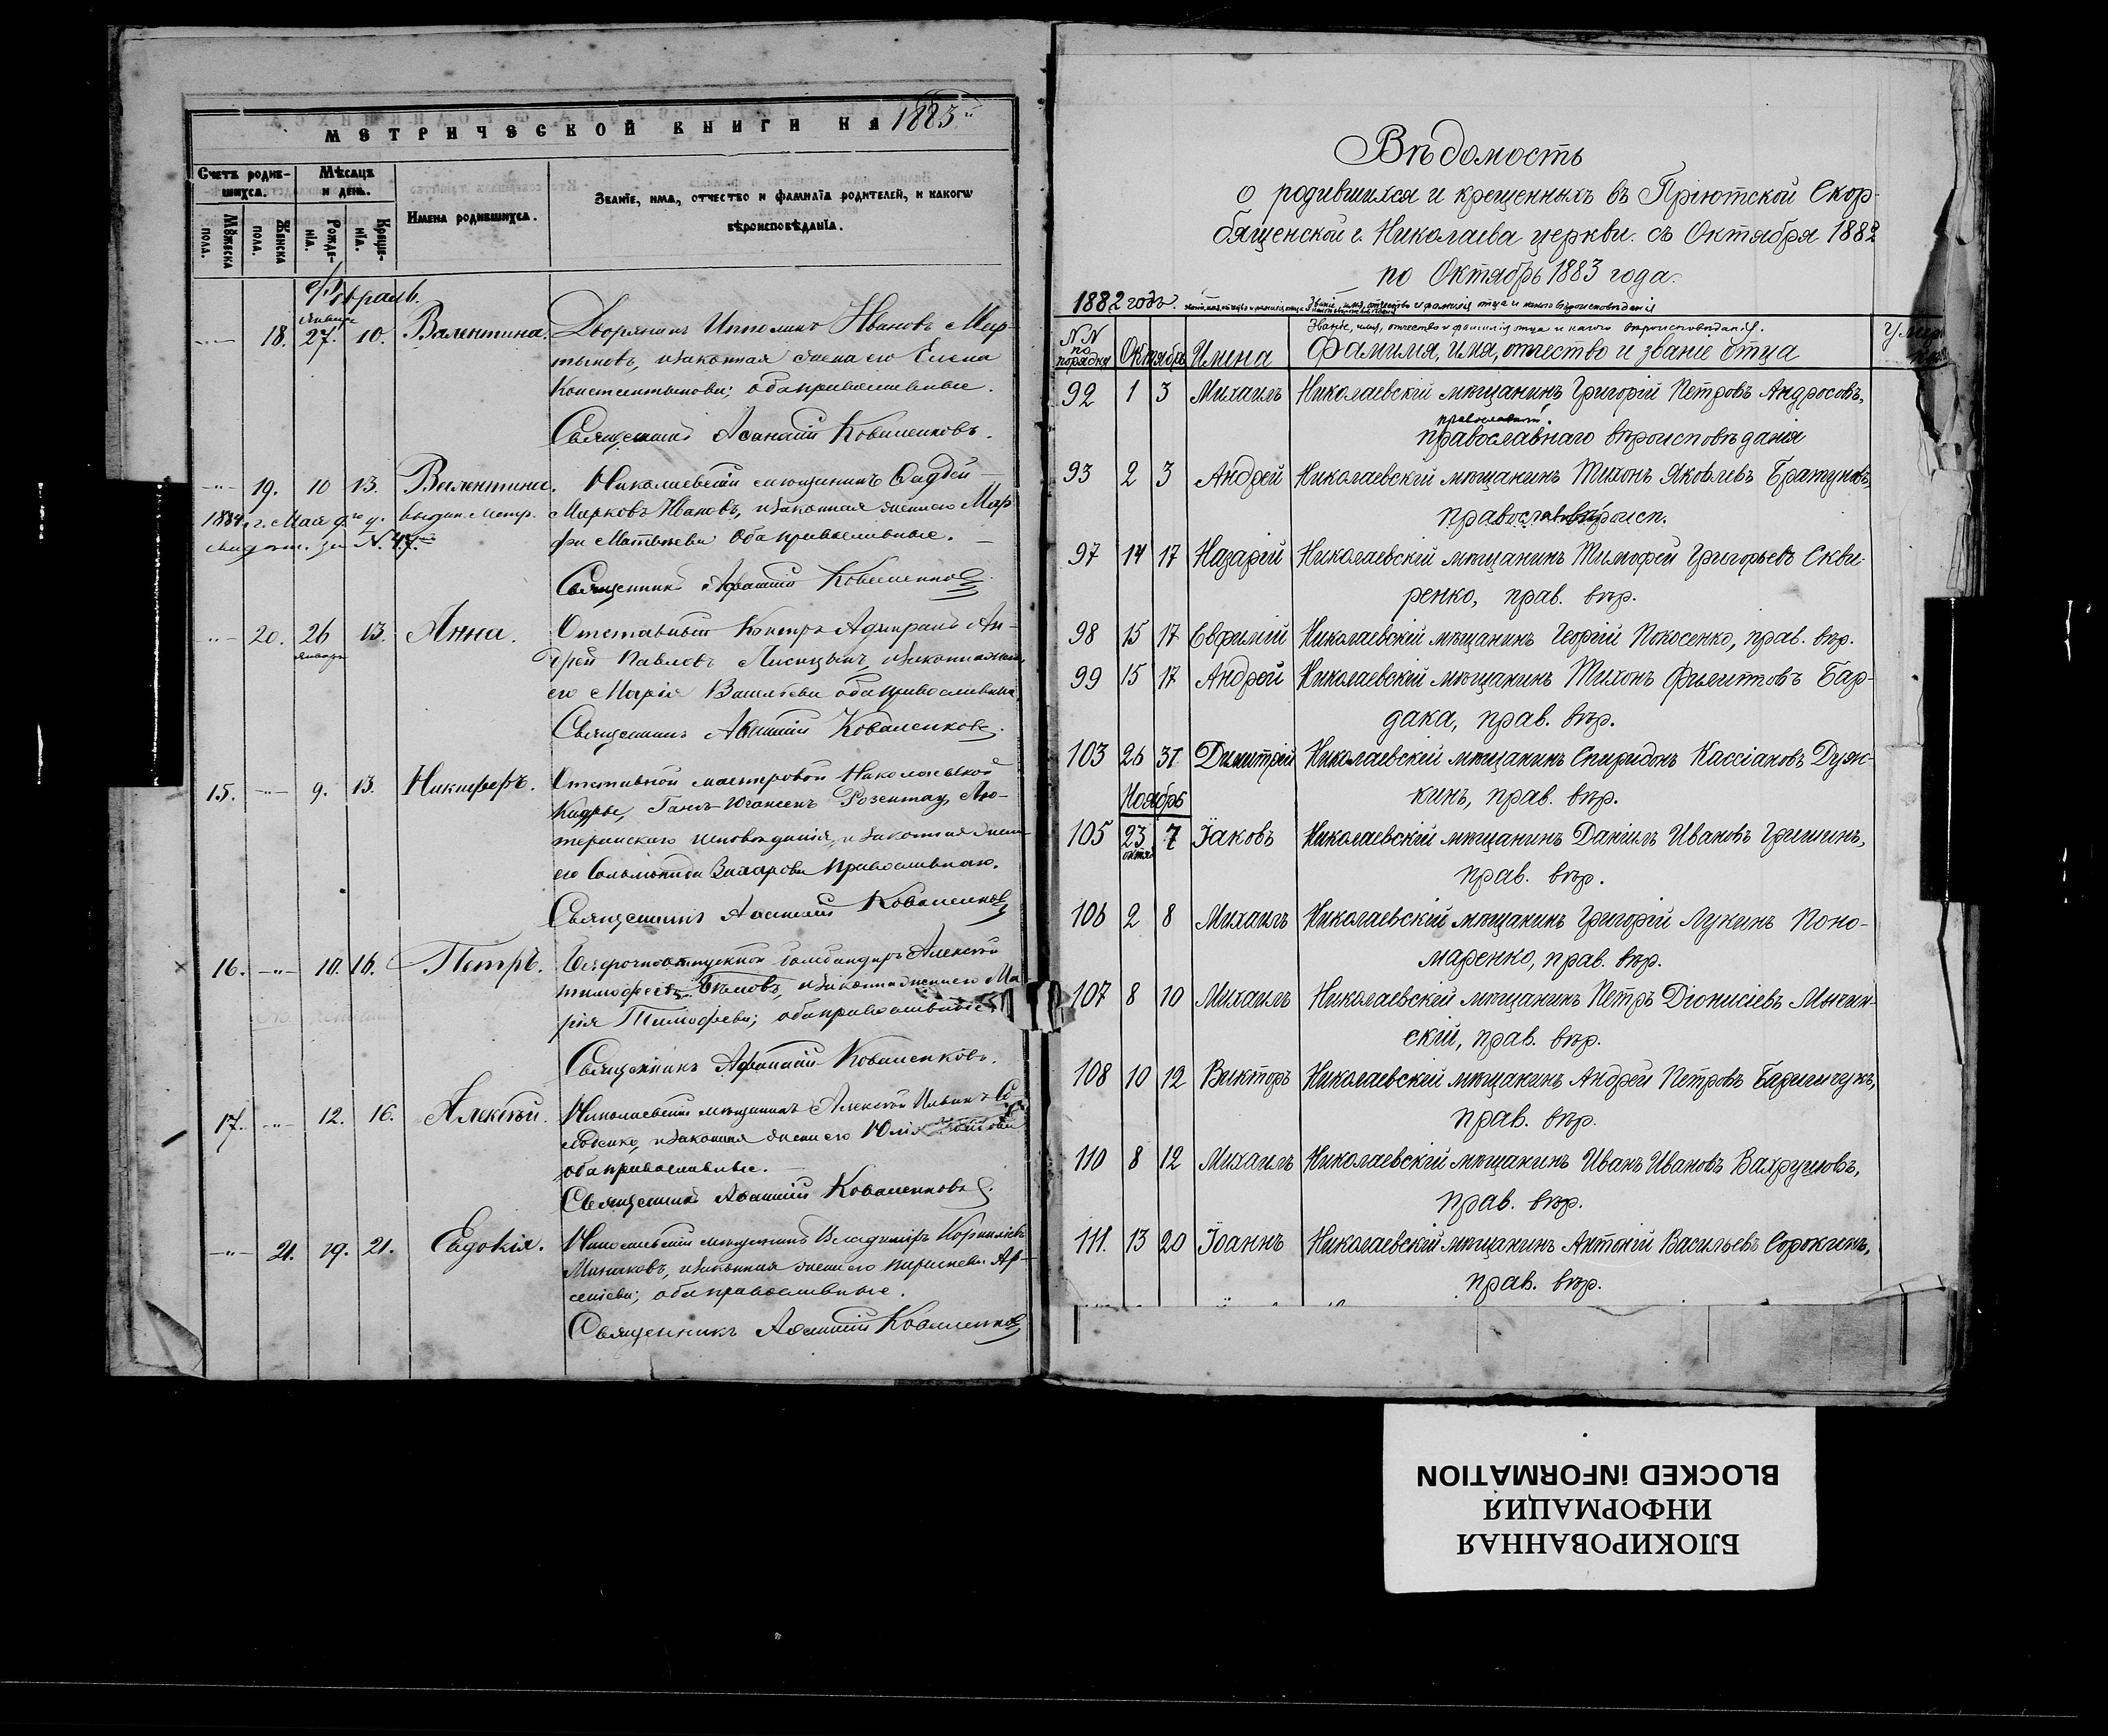 МЕТРИЧЕСКОЙ КНИГИ НА 1883
Счетъ родив-
шихся.
Мѣсяцъ
и день.
Имена родившихся.
Званїе, имя, отчество и фамилїя родителей, и какогѡ
вѣроисповѣданїя.
Мужеска
пола.
Женска
пола.
Рожде-
нїя.
Креще-
нїя.
Февраль.
Января
18. 27. 10. Валентина. Дворянинъ Ипполитъ Ивановъ Мар-
тыновъ, и законная жена его Елена
Константинова; оба православные.
Священникъ Аѳанасій Коваленковъ.
19. 10 13. Валентина. Николаевскій мѣщанинъ Фадѣй
1884 г. Мая выдан. Метр. Марковъ Ивановъ, и законная жена его Мар-
свидѣт. за N. 47. фа Матвѣева оба православные.
Священникъ Афанасій Коваленковъ
20. 26 13. Анна. Отставной Адмирала Ан-
января
дрей Павловъ Лисицынъ, и законная жена
его Марія Васильева оба православные
Священникъ Аѳанасій Коваленковъ.
15. 9. 13. Никифоръ. Отставной мастеровой Николаевской
Гансъ Розентау, Лю-
теранскаго исповѣданія, и законная жена
его Захарова православная.
Священникъ Аѳанасій Коваленковъ
16. 10. 16. Петръ. Безсрочноотпускной бомбандиръ Алексѣй
Тимофеевъ Бѣловъ, и законная жена его Ма-
рія Тимофеева; оба православные
Священникъ Афанасій Коваленковъ.
17. 12. 16. Алексѣй. Николаевскій мѣщанинъ Алексѣй
и законная жена его Юлія
оба православные.
Священникъ Аѳанасій Коваленковъ.
21. 19. 21. Евдокія. Николаевскій мѣщанинъ Владиміръ Корниліевъ
Минаковъ, и законная жена его Ар-
сеніева; оба православные.
Священникъ Аѳанасій Коваленковъ
Вѣдомость
о родившихся и крещенныхъ въ Пріютской Скор-
бященской г. Николаева церкви. съ Октября 1882
по Октябрь 1883 года.
1882 годъ. Званіе, имя, отчество и фамилія отца и какого вѣроисповѣданія
Званіе, имя, отчество и фамилія отца и какого вѣроисповѣданія.
NN
по
порядку Октябрь Имена Фамилія, имя, отчество и званіе отца
92 1 3 Михаилъ Николаевскій мѣщанинъ Григорій Петровъ Андросовъ,
православнаго вѣроисповѣданія
93 2 3 Андрей Николаевскій мѣщанинъ Тихонъ Яковлевъ Братуновъ,
православн. вѣроисп.
97 14 17 Назарій Николаевскій мѣщанинъ Тимофей Григорьевъ Скви-
ренко, прав. вѣр.
98 15 17 Евфимій Николаевскій мѣщанинъ Георгій Покосенко, прав. вѣр.
99 15 17 Андрей Николаевскій мѣщанинъ Тихонъ Филиповъ Бар-
дака, прав. вѣр.
103 26 31 Димитрій Николаевскій мѣщанинъ Спиридонъ Кассіановъ Дуж-
кинъ, прав. вѣр.
Ноябрь
105 23 7 Іаковъ Николаевскій мѣщанинъ Даніилъ Ивановъ Гришинъ,
октяб
прав. вѣр.
106 2 8 Михаилъ Николаевскій мѣщанинъ Григорій Лукинъ Поно-
маренко, прав. вѣр.
107 8 10 Михаилъ Николаевскій мѣщанинъ Петръ Діонисіевъ Мычин-
скій, прав. вѣр.
108 10 12 Викторъ Николаевскій мѣщанинъ Андрей Петровъ
прав. вѣр.
110 8 12 Михаилъ Николаевскій мѣщанинъ Иванъ Ивановъ Вахрушовъ,
прав. вѣр.
111. 13 20 Іоаннъ Николаевскій мѣщанинъ Антоній Васильевъ Сорокинъ,
прав. вѣр.
БЛОКИРОВАННАЯ
ИНФОРМАЦИЯ
BLOCKED INFORMATION